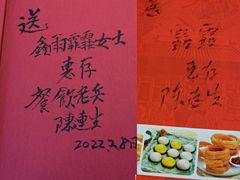 送：
鑫羽霏霏女士
惠存
餐飲老兵
陳連生
2022.2.8日
霏霏
惠存
陈连生